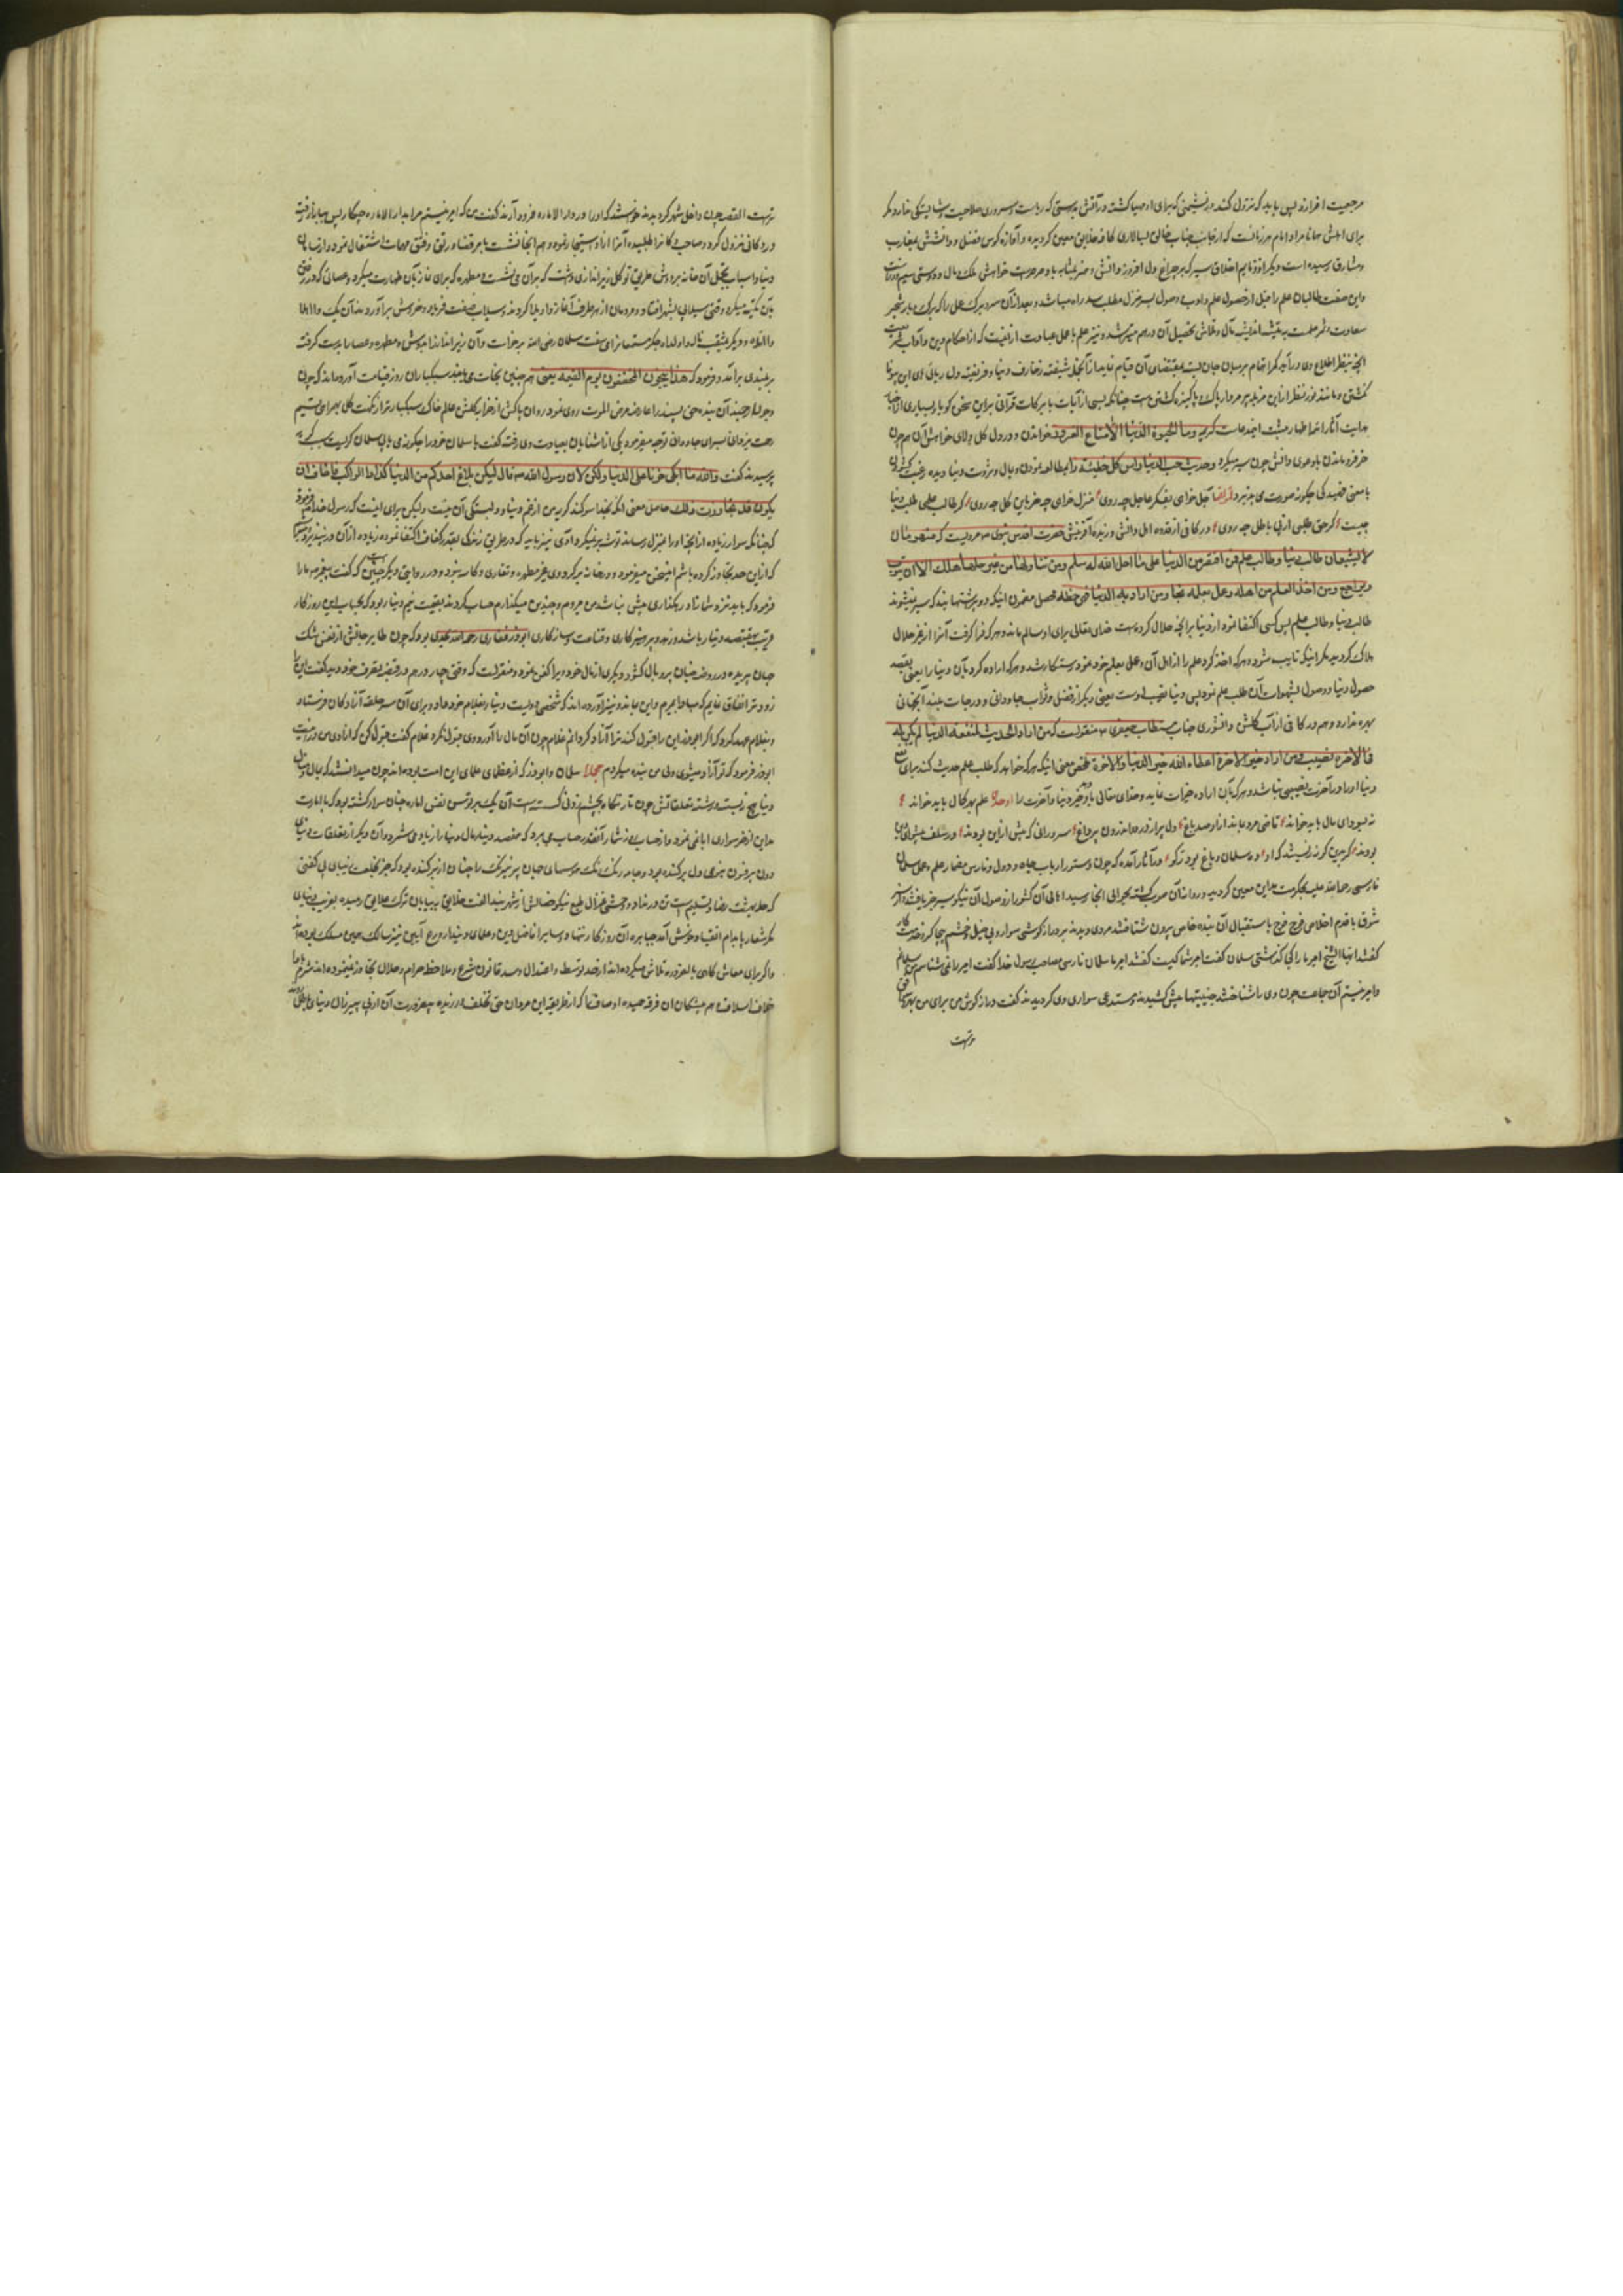 مرجعیت افرازد پس باید که نزول کند در نشیمنی که برای اوصیا کشته در آفتش بدرستی که ریاست و سروری صلاحیت و شایستگی ندارد مگر
برای اهلش همانا مراد امام هر زمانست که از جانب جناب خالق بسالاری کافه خلایق معین کردیده و آوازه کوس فضل و دانشش بمغارب
و مشارق رسیده است دیگر از ذمایم اخلاق سیر که بر چراغ دل افروز دانش و هنر بمثابه باد صرصرست خواهش ملک و مال و دوستی سیم و زرست
واین صفت طالبان علم را قبل از حصول علم و ادب وصول بسر منزل مطلب سد راه میباشد و بعد از آن سر و برگ عمل را که برگ و بار شجر
سعادت و ثمر علمست
آنچه بنظر اطلاع وی در آید کمر اهتمام بر میان جان بسته بمقتضای آن قیام نماید از آنجمله شیفته زخارف دنیا و فریفته دل ربائی های این بیوفا
نکشتن و مانند نور نظر از این مزبله پر مردار پاک و پاکیزه کذشتن است چنانکه بسی از آیات با برکات قرآنی براین سخن کویا و بسیاری از اخبار
هدایت آثار ائمه اطهار مثبت این مدعاست کریمه وما الحیوة الدنیا الا متاع الغرور خواندن و در دل کل ولای خواهش آن همچون
خر فرو ماندن با دعوی دانش چون سر میکرد و حدیث حب الدنیا راس کل خطیئة را مطالعه نمودن و بمال و ثروت دنیا دیده رغبت کشودن
با معنی فهمیدکی چکونه صورت می پذیرد لراقما آجل خواهی بفکر عاجل چه روی منزل خواهی چه خر باین کل چه روی گر طالب علمی طلب دنیا
چیست گر حق طلبی از پی باطل چه روی و در کافی از قدوه اهل دانش و زبده آفرینش حضرت اقدس نبوی ص مرویست که منهومان
لا یشبعان طالب دنیا وطالب علم فمن اقتصر من الدنیا علی ما احل الله له سلم ومن تناولها من غیر حلها هلک الا ان یتوب
ویراجع ومن اخذ العلم من اهله وعمل بعلمه نجا ومن اراد به الدنیا فهی حظه محصل مضمون آنکه دو پر اشتهایند که سیر نمیشوند
طالب دنیا و طالب علم پس کسی اکتفا نمود از دنیا بر آنچه حلال کرده است خدای تعالی برای او سالم ماند و هر که فرا کرفت آنرا از غیر حلال
هلاک کردید مگر اینکه تایب شود و هر که اخذ کرد علم را از اهل آن و عمل بعلم خود نمود رستکار شد و هر که اراده کرد بآن دنیا را یعنی بقصد
حصول دنیا و وصول بشهوات آن طلب علم نمود پس دنیا نصیب اوست یعنی دیگر از فضل و ثواب جاودانی و درجات بلند آنجهانی
بهره ندارد و هم در کافی از آب کلشن دانشوری جناب مستطاب جعفری ع منقولست که من اراد الحدیث لمنفعة الدنیا لم یکن له
فی الاخرة نصیب ومن اراد خیر الاخرة اعطاه الله خیر الدنیا والاخرة ملخص معنی آنیکه هر که خواهد که طلب علم حدیث کند برای نفع
دنیا او را در آخرت نصیبی نباشد و هر که بآن اراده خیرات نماید و خدای تعالی باو دهد خیر دنیا و آخرت را اوحدی علم بهر کمال باید خواند
نه بسودای مال باید خواند قاضی مرو چند از او صد باغ دل پر از درد و اندرون پر داغ سرورانی که پیش ازین بودند در سلف پیشوای دین
بودند گر چین کرند زمیشند که او ده سلمان و باغ بوذر گو در آثار آمده که چون دستور ارباب جاه و دول و فارس مضمار علم و عمل سلمان
فارسی رحمة الله علیه بحکومت مداین معین کردید و روانه آن صوب کشته بحوالی آنجا رسید اهالی آن کشور از وصول آن نیکو سیر خبر یافته از سر
شوق با قدم اخلاص فوج فوج باستقبال آن بنده خاص بیرون شتافتند مردی دیدند بر دراز کوشی سوار و بی خیل و حشم
کفتند ایها الشیخ امیر ما را کجا کذاشتی سلمان کفت امیر شما کیست کفتند امیر ما سلمان فارسی مصاحب رسول خدا کفت امیر را نمی شناسم من سلمانم
و امیر نیستم آن جماعت چون وی را شناختند جنیبتها پیش کشیدند و مستدعی سواری وی کردیدند کفت دراز کوش من برای من بهتر و
موافق
ترست القصه چون داخل شهر کردیدند خواستند که او را در دار الاماره فرود آرند کفت من که امیر نیستم مرا بدار الاماره چکار پس ببازار رفته
در دکانی نزول کرد و صاحب دکانرا طلبیده آنرا از او استیجار نموده و هم آنجا نشست بامر قضا و رتق و فتق مهمات اشتغال نمود و از سامان
دنیا و اسباب تجمل آن خانه بردوش طریق توکل زیراندازی داشت که بر آن می نشست و مطهره که برای نماز بآن طهارت میکرد و عصائی که در رفتن
بآن تکیه میکرد وقتی سیلابی بشهر افتاد و مردمان از هر طرف آغاز واویلا کردند و سیلاب صفت فریاد و خروش بر آوردند آن یک وا اهلا
وا اهلاه و دیگری بمثقب ناله وا ولداه جگر مستمعانرا می سفت سلمان رضی الله عنه برخاست و آن زیرانداز را بدوش و مطهره و عصا را بدست کرفته
بر بلندی بر آمد و فرمود که هکذا ینجون المخففون یوم القیمة یعنی همچنین نجات می یابند سبکباران روز قیامت آورده اند که چون
وجود ارجمند آن بنده حق پسند را عارضه مرض الموت روی نمود و روان پاکش از خزار کلشن عالم خاک سبکبارتر از نکهت کل بهوای نسیم
رحمت یزدانی بسرای جاودانی توجه میفرمود یکی از آشنایان بعیادت وی رفته کفت یا سلمان خود را چکونه می یابی سلمان کریست سبب کریه
پرسیدند کفت والله ما ابکی حزنا علی الدنیا ولکن لان رسول الله ص قال لیکن بلاغ احدکم من الدنیا کزاد الراکب فاخاف ان
یکون قد تجاوزت ذلک حاصل معنی آنکه بخدا سوکند کریه من از غم دنیا و دلبستگی آن نیست ولیکن برای اینست که رسول خدا فرمود
که چنانکه سوار زیاده از آنچه او را بمنزل رساند توشه برنمیگیرد آدمی نیز باید که در طریق زندگی بقدر کفاف اکتفا نموده زیاده از آن در بند نبود میترسم
که از این حد تجاوز کرده باشم این سخن میفرمود و در خانه بر گرد وی غیر مطهره و تغاری و کاسه نبود و در روایتی دیگر چنین است که کفت پیغمبر ص ما را
فرمود که باید نزد شما زاد رهگذاری بیش نباشد من مردم و چندین میگذارم حساب کردند بقیمت نیم دینار بود که بحساب این روزگار
قریب بهفتصد دینار باشد و زهد و پرهیزکاری و قناعت و سازکاری ابوذر غفاری رحمة الله بحدی بود که چون طایر جانش از قفس تنک
جهان پریده در روضه جنان پر و بال کشود دیگری از مال خود ویرا کفن نمود و منقولست که وقتی چهار درهم در قبضه تصرف خود دید کفت این را
زودتر انفاق نمایم که مبادا بمیرم و این بماند و نیز آورده اند که شخصی دویست دینار بغلام خود داد و برای آن سر حلقه آزادکان فرستاد
و بغلام عهد کرد که اگر ابوذر این را قبول کند ترا آزاد کردانم غلام چون آن مال را آورد وی قبول نکرد غلام کفت قبول کن که آزادی من در اینست
ابوذر فرمود که تو آزاد میشوی ولی من بنده میگردم مجملا سلمان و ابوذر که از عظمای علمای این امت بوده اند چون میدانستند که مال و منال
دنیا هیچ نیست و رشته تعلقاتش چون تار نگاه بچشم زدنی کسسته است آن یک بر توسن نفس اماره چنان سوار کشته بود که با امارت
مداین از خر سواری ابا نمی نمود و از حساب روز شمار آنقدر حساب می برد که هفتصد دینار مال دنیا را زیاد می شمرد و آن دیگر از تعلقات دنیای
دون بر فنون بنوعی دل برکنده بود و جامه رنک رنک هوسهای جهان پر نیرنک را چنان از بر کنده بود که جز بخلعت زیبای بی کفنی
که حله بهشت رضا و تسلیم است تن در نداد
مگر شعار پاپدام اتقیا و
واکر برای معاش کاهی بالضروره تلاش میکرده اند از حد توسط و اعتدال و سد قانون شرع و ملاحظه حرام و حلال تجاوز نمینموده اند
خلاف اسلاف هم پیشکان آن فرقه حمیده اوصاف اند که از طریقه این مردان حق تخلف ورزیده بی ضرورت آن از پی پیر زال دنیای